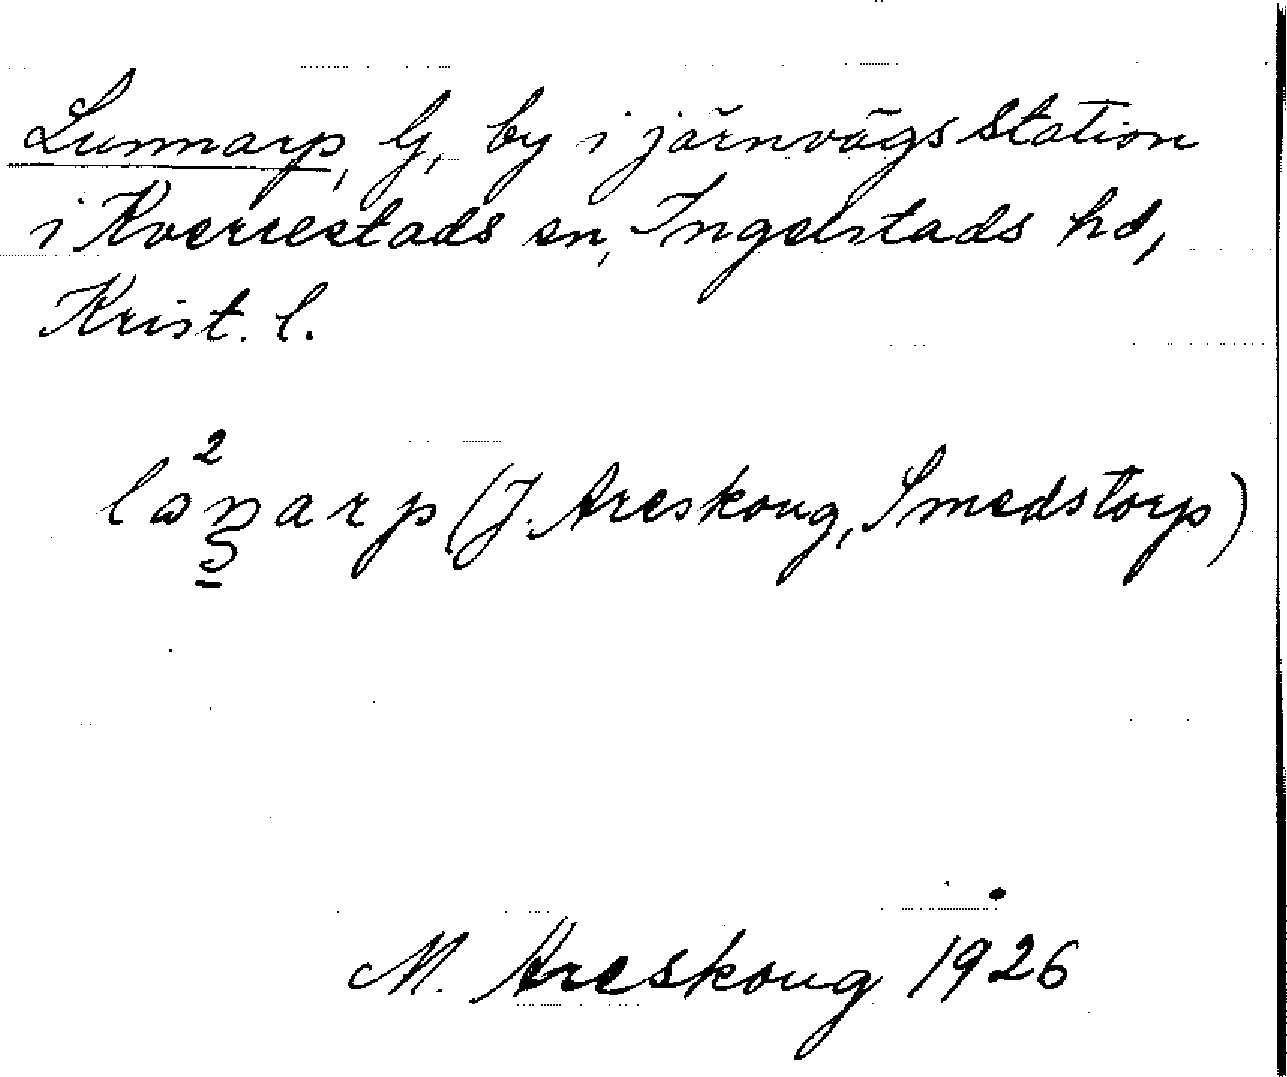 Lunnarp, G, by i järnvägsstation
i Kverrestads sn, Ingelstads hd,
Krist. l.
(J. Areskoug, Smedstorp)
M. Areskoug 1926